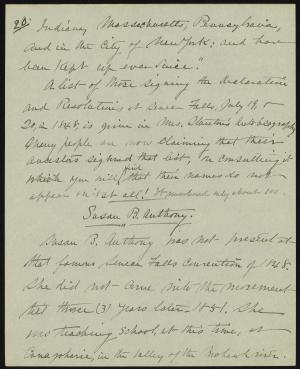 Indiana, Massachusetts, Pennsylvania,
and in the City of New York; and have
been kept up ever since."
A list of those signing the Declaration
and Resolutions at Seneca Falls, July 19 &
20, 1848, is given in Mrs. Stanton's Autobiography
Many people are now claiming that their
ancestors signed that list, on consulting it
which you will find that their names do not
appear on it at all! It numbered only about 100.
Susan B. Anthony.
Susan B. Anthony was not present at
that famous Seneca Falls Convention of 1848.
She did not come into the movement
til three (3) years later - 1851. She
was teaching School, at this time, at
Canajoharie, in the valley of the Mohawk river.